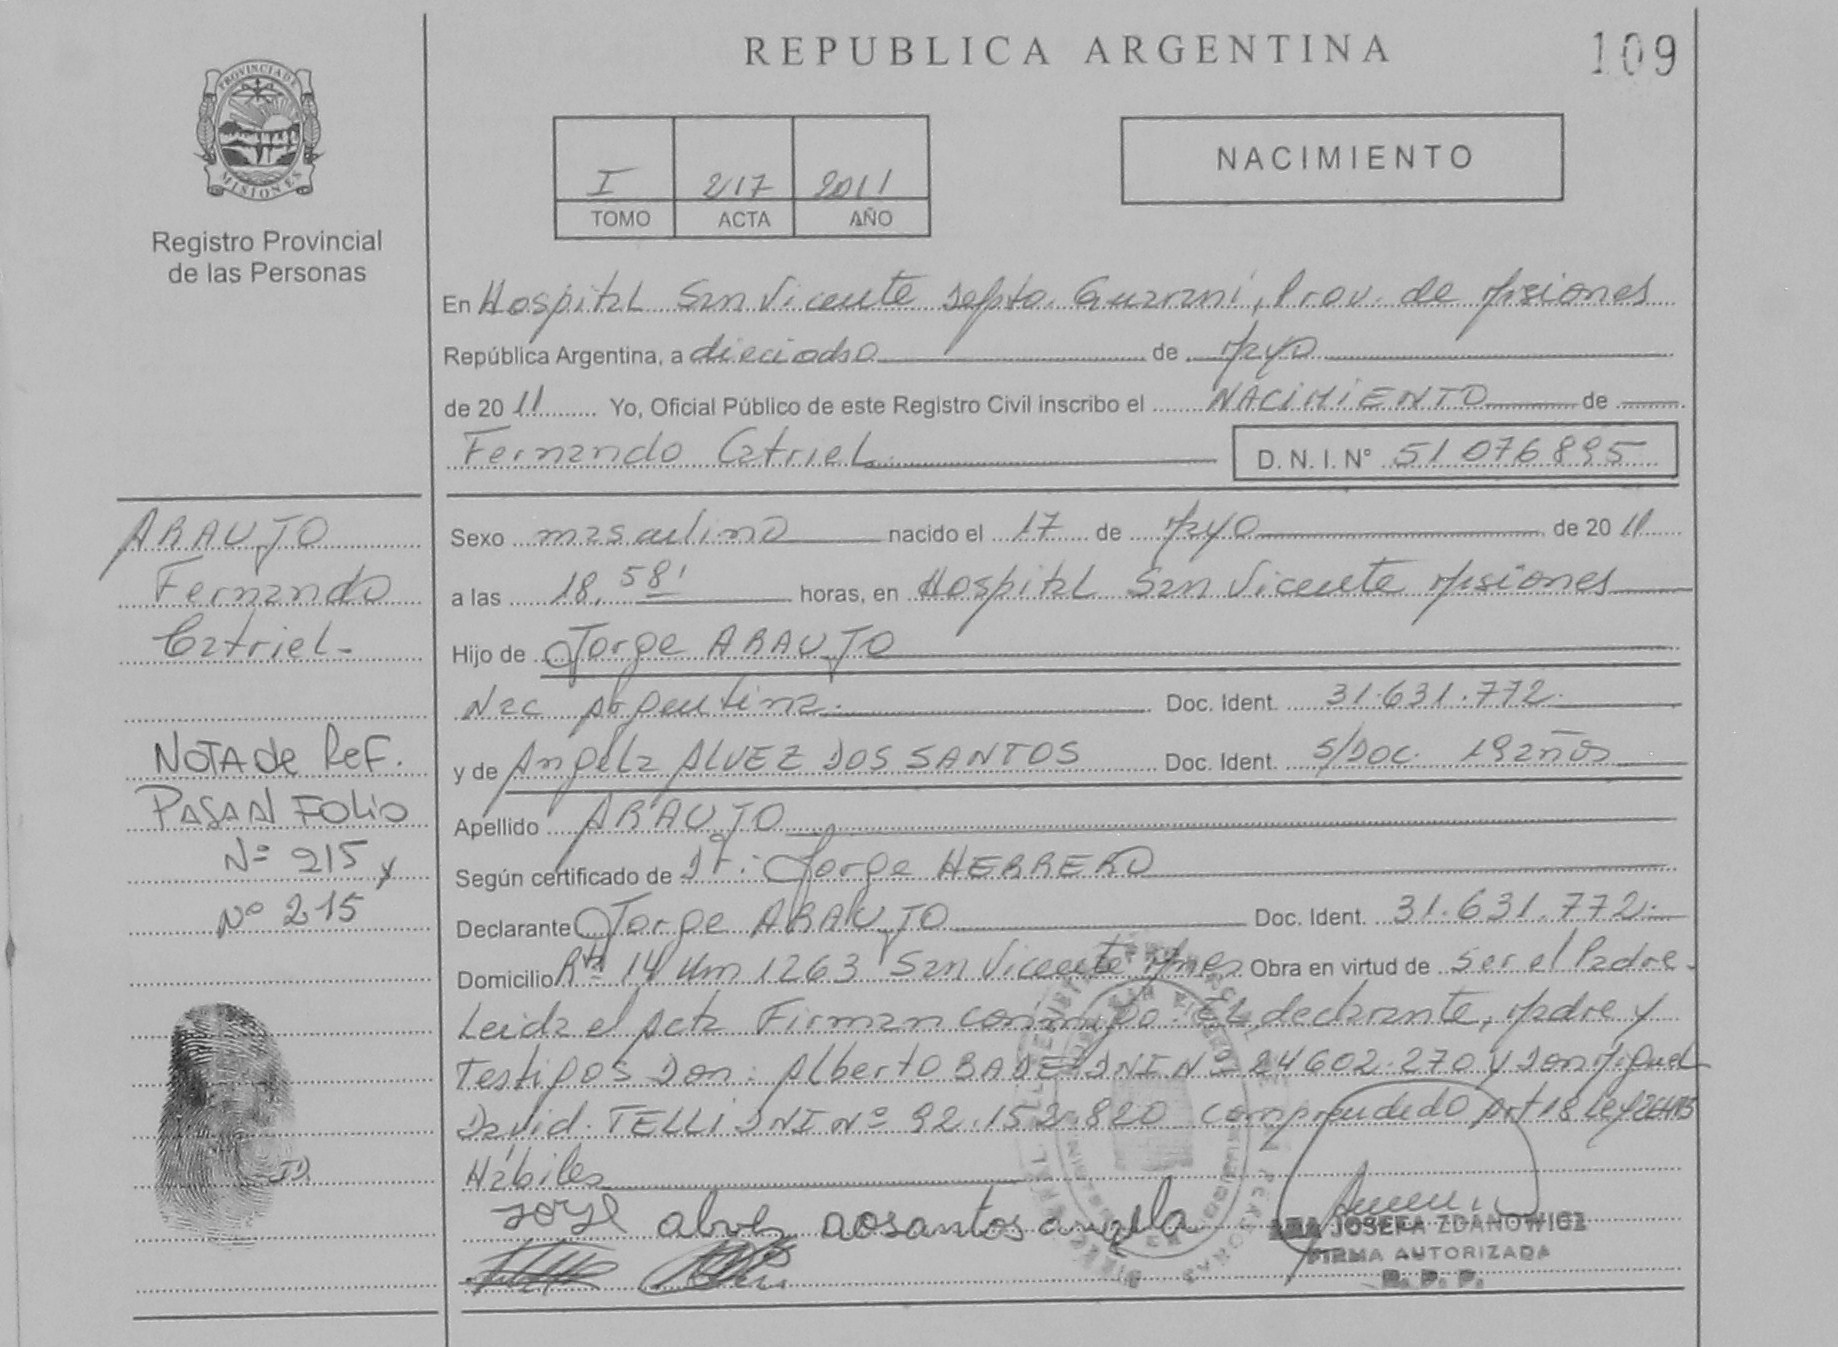 REPUBLICA ARGENTINA
109
PROVINCIA DE
MISIONES
Registro Provincial
de las Personas
I 217 2011
TOMO ACTA AÑO
NACIMIENTO
En Hospital San Vicente Depto. Guarani, Prov. de Misiones
República Argentina, a dieciocho de Mayo
de 2011 Yo, Oficial Público de este Registro Civil inscribo el NACIMIENTO de
Fernando Catriel D. N. I. N° 51076895
ARAUJO
Fernando
Catriel-
NOTA de Ref.
PASAN FOLIO
N° 215 y
N° 215
Sexo masculino nacido el 17 de Mayo de 2011
a las 18,58' horas, en Hospital San Vicente Misiones
Hijo de Jorge ARAUJO
Nac Argentina. Doc. Ident. 31.631.772.
y de Angela ALVEZ DOS SANTOS Doc. Ident. S/DOC. 19 años
Apellido ARAUJO
Según certificado de Dr: Jorge HERRERO
Declarante Jorge ARAUJO Doc. Ident. 31.631.772.
Domicilio Rta 14 Km 1263 San Vicente Mnes Obra en virtud de Ser el Padre.
Leida el Acta Firman conmigo El declarante, Madre y
Testigos Don: Alberto DNI N° 24602.270 y Don Miguel
David. TELLI DNI N° 92.152.820 comprendido Art 18 Ley
Hábiles
Jorge alvez dosantos angela
JOSEFA ZDANOWICZ
FIRMA AUTORIZADA
R. P. P.